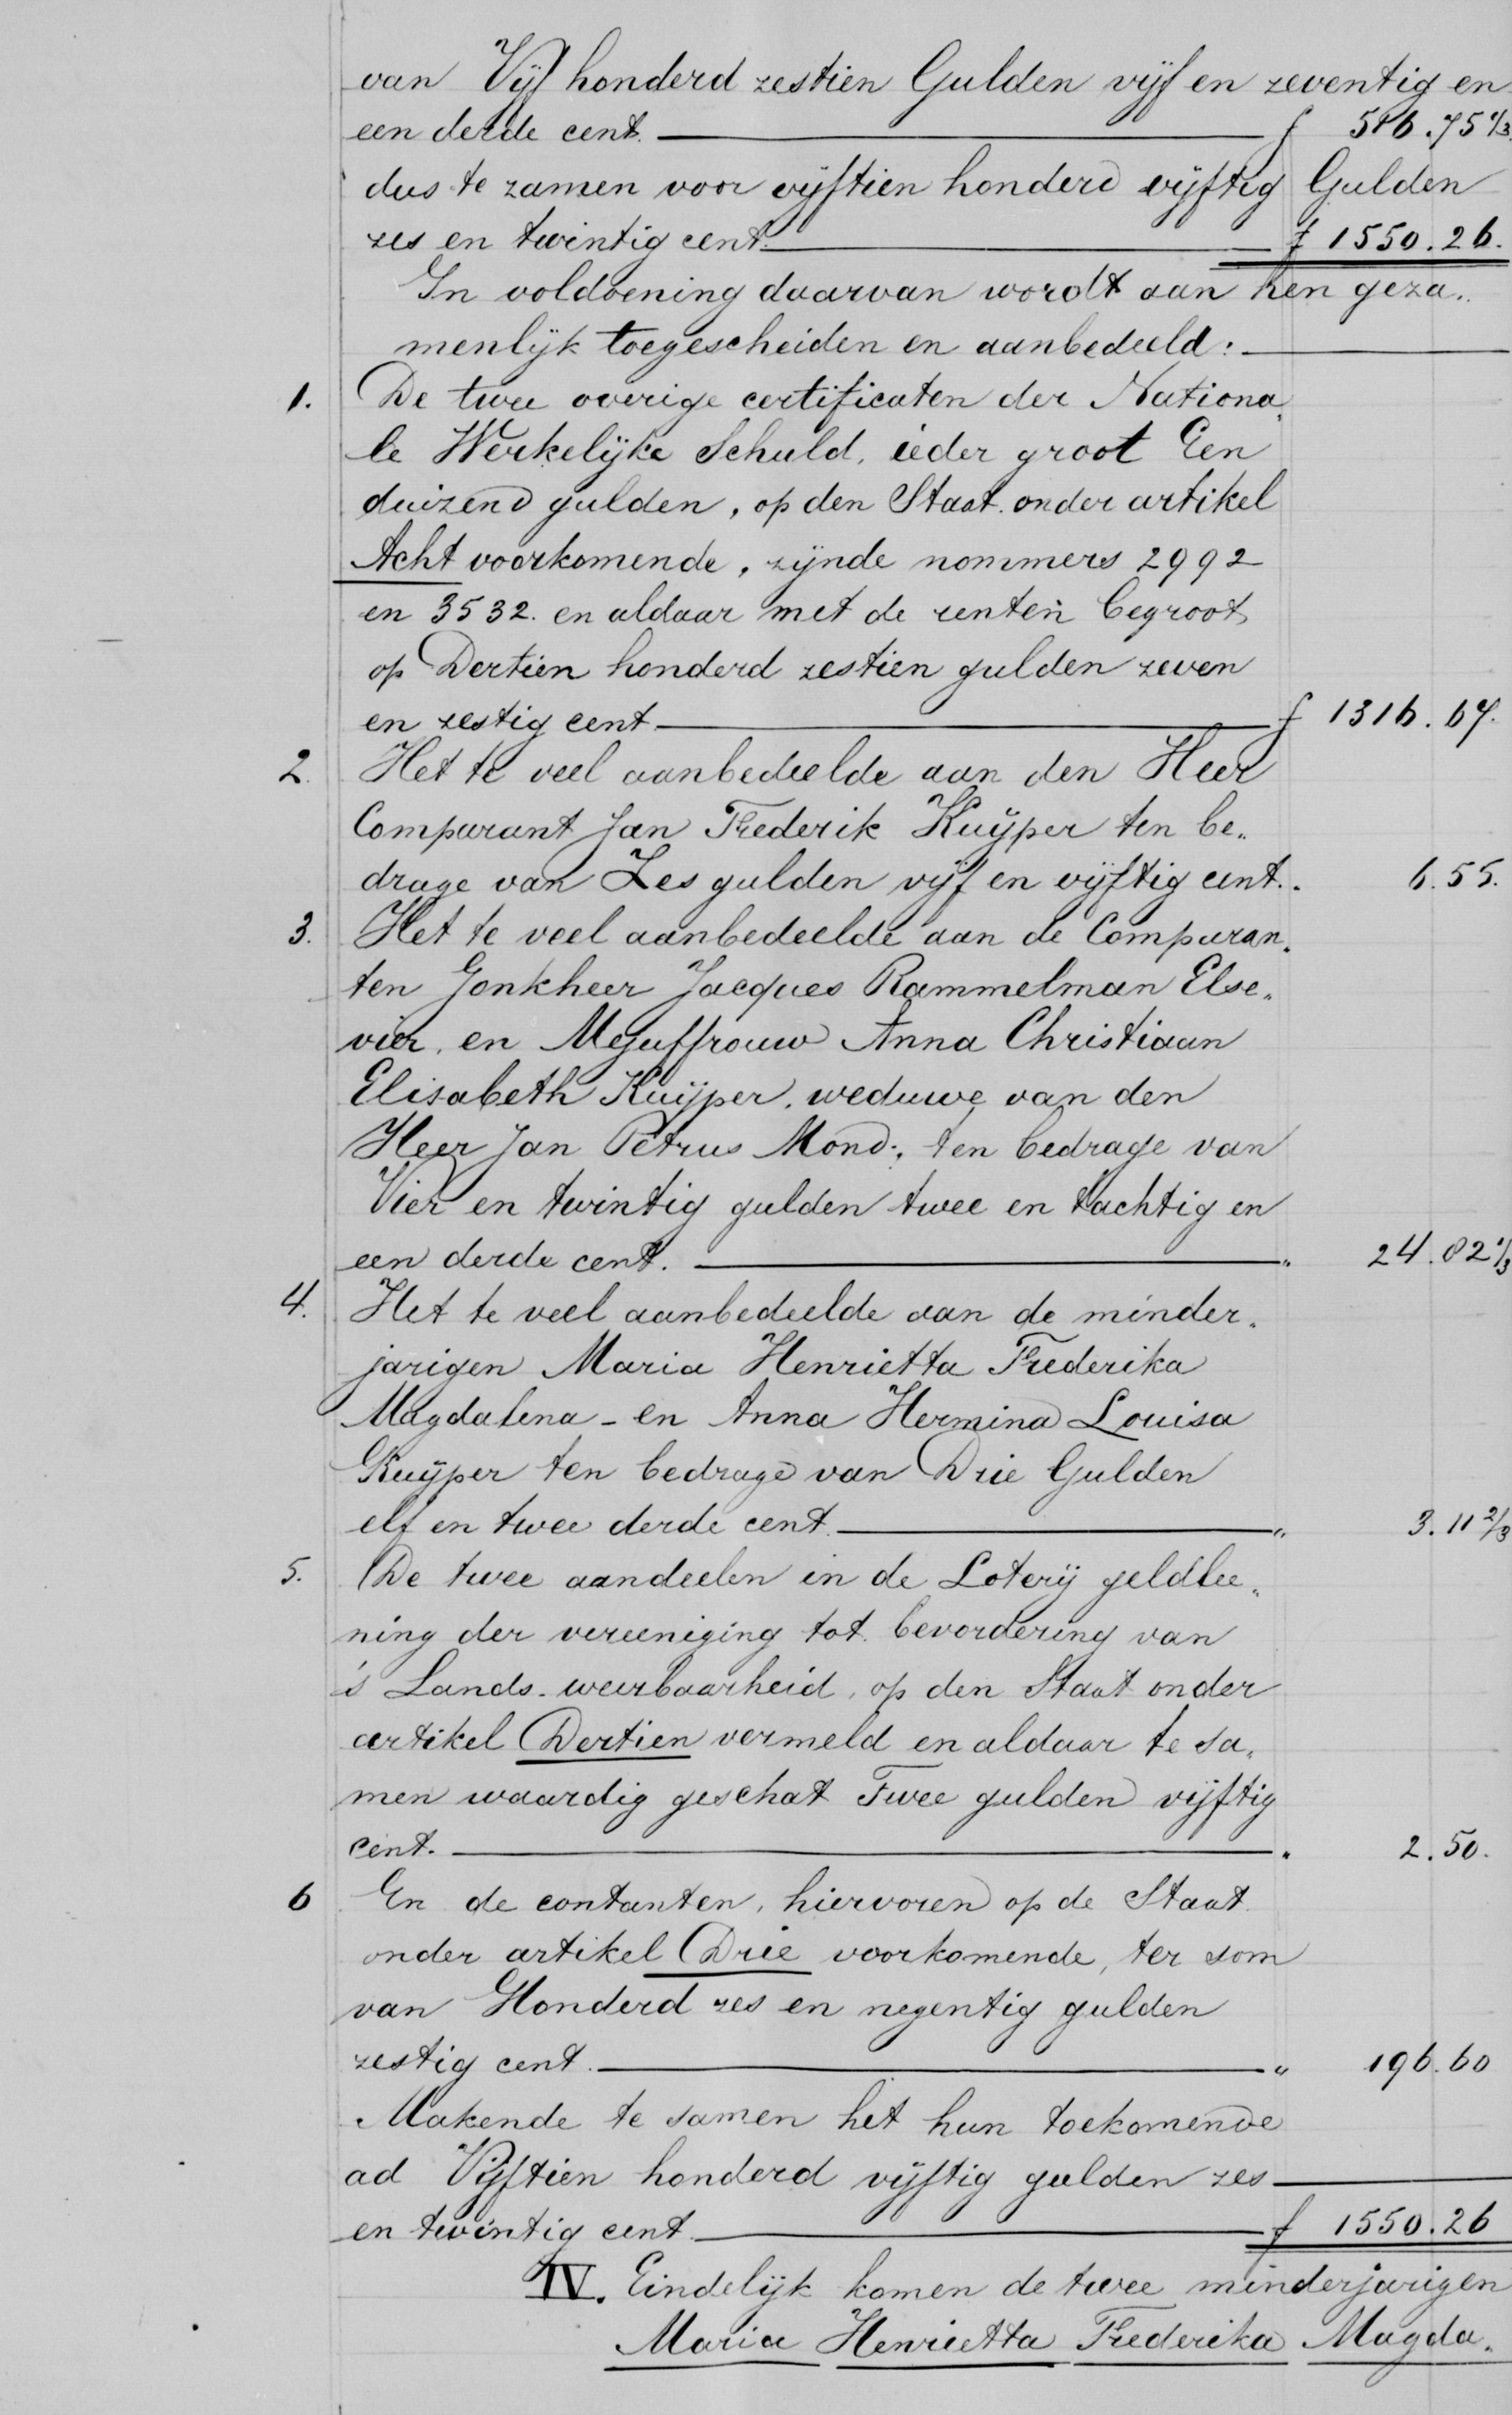 van Vijf honderd zestien Gulden vijf en zeventig en
een derde cent. ƒ 516.75 1/3.
dus te zamen voor vijftien honderd vijftig Gulden
zes en twintig cent. ƒ 1550.26.
In voldoening daarvan wordt aan hen geza„
menlijk toegescheiden en aanbedeeld:
1. De twee overige certificaten der Nationa„
le Werkelijke Schuld, ieder groot Een
duizend gulden, op den Staat onder artikel
Acht voorkomende, zijnde nommers 2992
en 3532. en aldaar met de renten begroot
op Dertien honderd zestien gulden zeven
en zestig cent ƒ 1316.67.
2. Het te veel aanbedeelde aan den Heer
Comparant Jan Frederik Kuijper ten be„
drage van Zes gulden vijf en vijftig cent. „ 6.55.
3. Het te veel aanbedeelde aan de Comparan„
ten Jonkheer Jacques Rammelman Else„
vier, en Mejuffrouw Anna Christiaan
Elisabeth Kuijper, weduwe van den
Heer Jan Petrus Mond, ten bedrage van
Vier en twintig gulden twee en tachtig en
een derde cent. „ 24.82 1/3
4. Het te veel aanbedeelde aan de minder„
jarigen Maria Henrietta Frederika
Magdalena - en Anna Hermina Louisa
Kuijper ten bedrage van Drie Gulden
elf en twee derde cent. „ 3.11 2/3
5. De twee aandeelen in de Loterij geldlee„
ning der vereeniging tot bevordering van
's Lands-weerbaarheid, op den Staat onder
artikel Dertien vermeld en aldaar te sa„
men waardig geschat Twee gulden vijftig
cent. „ 2.50.
6 En de contanten, hiervoren op de Staat
onder artikel Drie voorkomende, ter som
van Honderd zes en negentig gulden
zestig cent. „ 196.60
Makende te samen het hun toekomende
ad Vijftien honderd vijftig gulden zes
en twintig cent. ƒ 1550.26
IV. Eindelijk komen de twee minderjarigen
Maria Henrietta Frederika Magda„